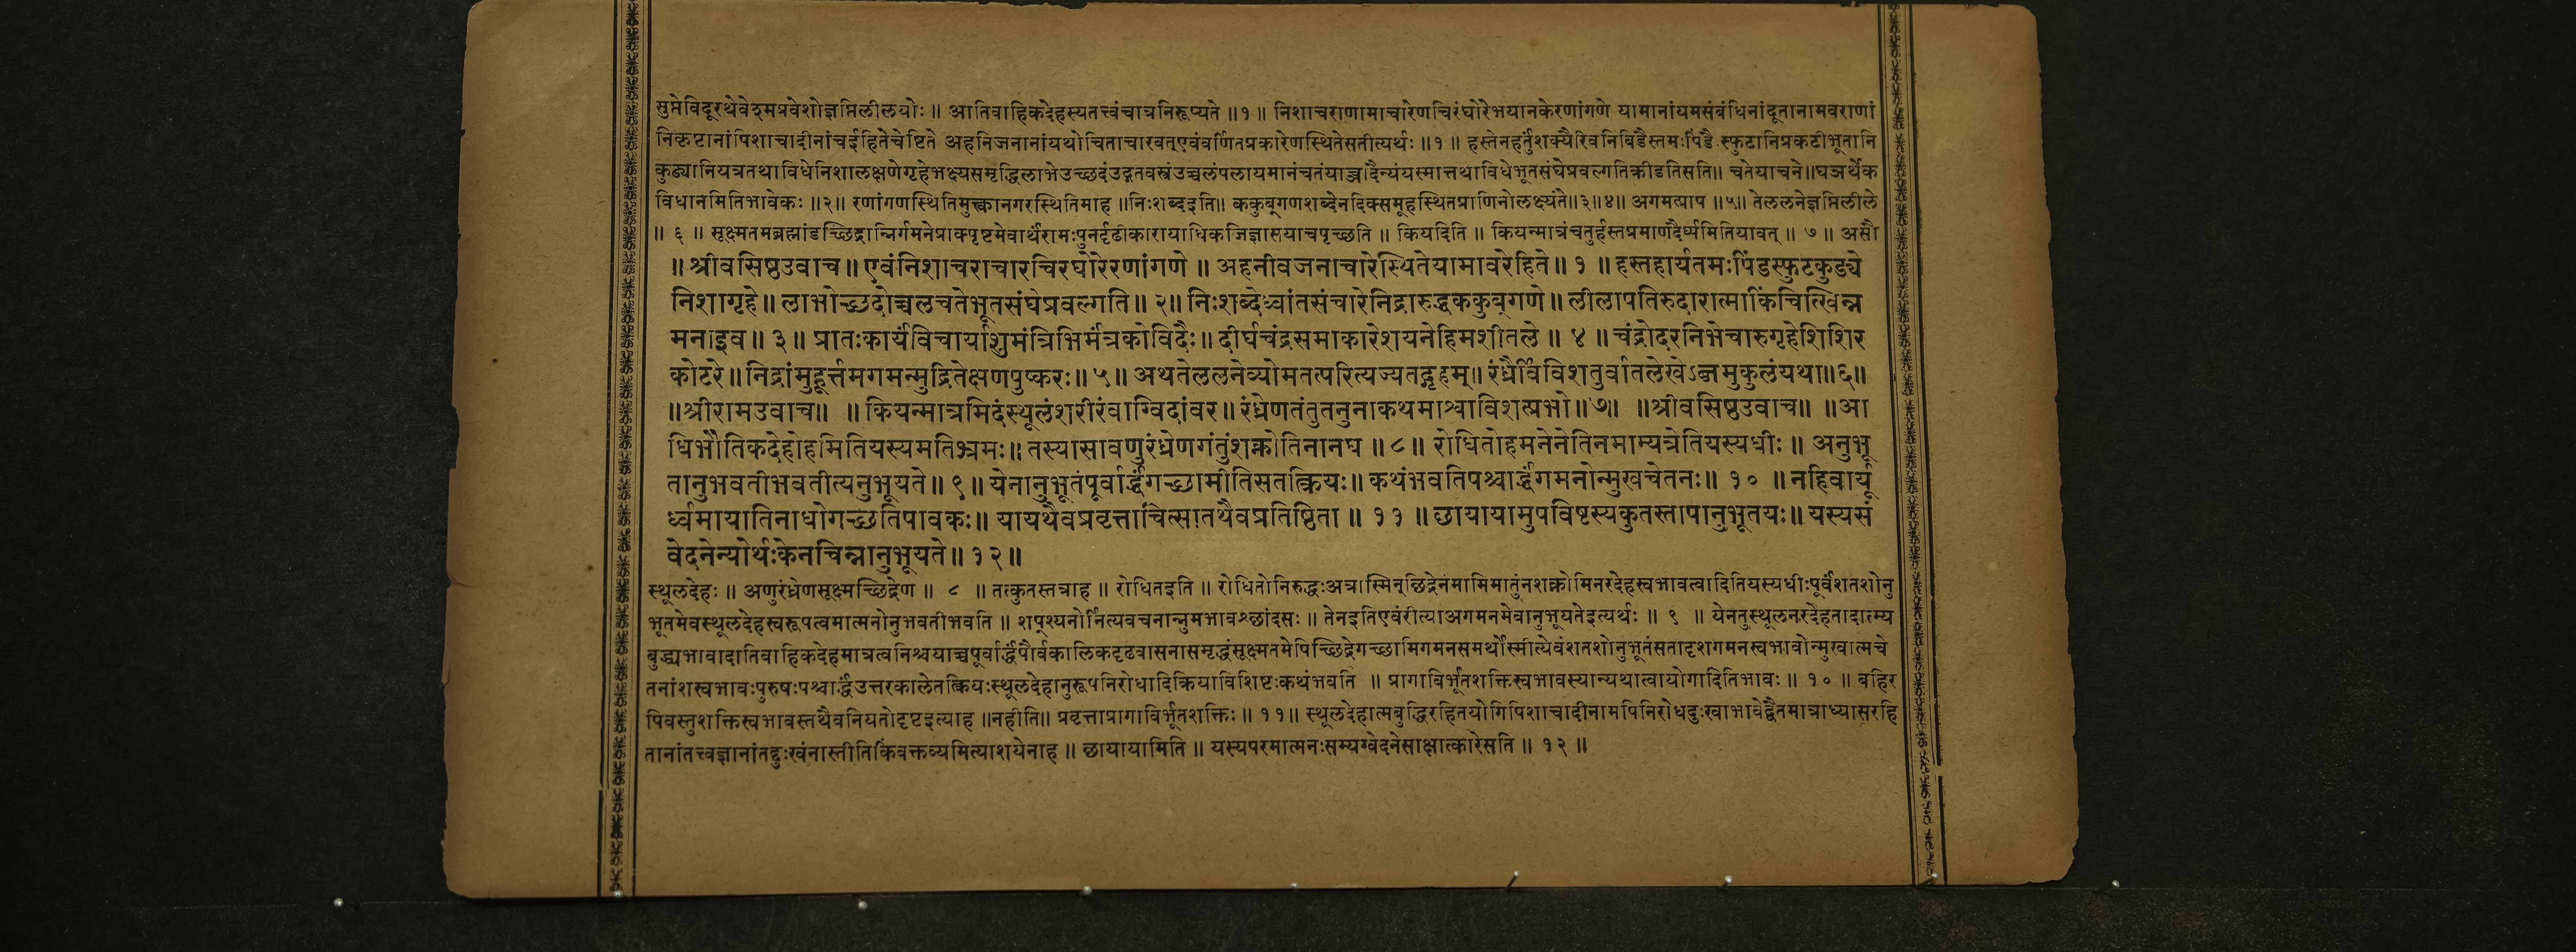 सुप्तेविदूरथेवेश्मप्रवेशोज्ञप्तिलीलयोः ॥ आतिवाहिकदेहस्यतत्त्वंचात्रनिरूप्यते ॥१॥ निशाचराणामाचारेणचिरंघोरेभयानकेरणांगणे यामानांयमसंबंधिनांदूतानामवराणां
निकृष्टानांपिशाचादीनांचईहितेचेष्टिते अहनिजनानांयथोचिताचारवत्एवंवर्णितप्रकारेणस्थितेसतीत्यर्थः ॥१॥ हस्तेनहर्तुंशक्यैरिवनिबिडैस्तमःपिंडै स्फुटानिप्रकटीभूतानि
कुड्यानियत्रतथाविधेनिशालक्षणेगृहेभक्ष्यसमृद्धिलाभेउच्छदंउद्गतवस्त्रंउच्चलंपलायमानंचतंयाच्ञादैन्यंयस्मात्तथाविधेभूतसंघेप्रवल्गतिक्रीडतिसति॥ चतेयाचने॥घञर्थेक
विधानमितिभावेकः ॥२॥ रणांगणस्थितिमुक्त्वानगरस्थितिमाह ॥निःशब्दइति॥ ककुब्गणशब्देनदिक्समूहस्थितप्राणिनोलक्ष्यंते॥३॥४॥ अगमत्प्राप ॥५॥ तेललनेज्ञप्तिलीले
॥ ६ ॥ सूक्ष्मतमब्रह्मांडच्छिद्रान्निर्गमनेप्राक्पृष्टमेवार्थंरामःपुनर्दृढीकारायाधिकजिज्ञासयाचपृच्छति ॥ कियदिति ॥ कियन्मात्रंचतुर्हस्तप्रमाणदैर्घ्यमितियावत् ॥ ७ ॥ असौ
॥श्रीवसिष्ठउवाच॥ एवंनिशाचराचारचिरघोरेरणांगणे ॥ अहनीवजनाचारेस्थितेयामावरेहिते॥ १ ॥ हस्तहार्यतमःपिंडस्फुटकुड्ये
निशागृहे॥ लाभोच्छदोच्चलचतेभूतसंघेप्रवल्गति॥ २॥ निःशब्देध्वांतसंचारेनिद्रारुद्धककुब्गणे॥ लीलापतिरुदारात्माकिंचित्खिन्न
मनाइव॥ ३॥ प्रातःकार्यंविचार्याशुमंत्रिभिर्मंत्रकोविदैः॥ दीर्घचंद्रसमाकारेशयनेहिमशीतले ॥ ४ ॥ चंद्रोदरनिभेचारुगृहेशिशिर
कोटरे॥ निद्रांमुहूर्त्तमगमन्मुद्रितेक्षणपुष्करः॥ ५॥ अथतेललनेव्योमतत्परित्यज्यतद्गृहम्॥ रंध्रैर्विविशतुर्वातलेखेऽब्जमुकुलंयथा॥६॥
॥श्रीरामउवाच॥ ॥ कियन्मात्रमिदंस्थूलंशरीरंवाग्विदांवर॥ रंध्रेणतंतुतनुनाकथमाश्वाविशत्प्रभो॥७॥ ॥श्रीवसिष्ठउवाच॥ ॥आ
धिभौतिकदेहोहमितियस्यमतिभ्रमः॥ तस्यासावणुरंध्रेणगंतुंशक्नोतिनानघ ॥ ८॥ रोधितोहमनेनेतिनमाम्यत्रेतियस्यधीः ॥ अनुभू
तानुभवतीभवतीत्यनुभूयते॥ ९॥ येनानुभूतंपूर्वार्द्धंगच्छामीतिसतत्क्रियः॥ कथंभवतिपश्चार्द्धंगमनोन्मुखचेतनः॥ १० ॥ नहिवार्यू
र्ध्वमायातिनाधोगच्छतिपावकः॥ यायथैवप्रवृत्ताचित्सातथैवप्रतिष्ठिता॥ ११ ॥ छायायामुपविष्टस्यकुतस्तापानुभूतयः॥ यस्यसं
वेदनेन्योर्थःकेनचिन्नानुभूयते॥ १२॥
स्थूलदेहः ॥ अणुरंध्रेणसूक्ष्मच्छिद्रेण ॥ ८ ॥ तत्कुतस्तत्राह ॥ रोधितइति ॥ रोधितोनिरुद्धःअत्रास्मिन्छिद्रेनंमामिमातुंनशक्नोमिनरदेहस्वभावत्वादितियस्यधीःपूर्वंशतशोनु
भूतमेवस्थूलदेहस्वरूपत्वमात्मनोनुभवतीभवति ॥ शप्श्यनोर्नित्यवचनान्नुमभावश्छांदसः ॥ तेनइतिएवंरीत्याअगमनमेवानुभूयतेइत्यर्थः ॥ ९ ॥ येनतुस्थूलनरदेहतादात्म्य
बुद्ध्यभावादातिवाहिकदेहमात्रत्वनिश्चयाच्चपूर्वार्द्धंपौर्वकालिकदृढवासनासमृद्धंसूक्ष्मतमेपिच्छिद्रेगच्छामिगमनसमर्थोस्मीत्येवंशतशोनुभूतंसतादृशगमनस्वभावोन्मुखात्मचे
तनांशस्वभावःपुरुषःपश्चार्द्धंउत्तरकालेतत्क्रियःस्थूलदेहानुरूपनिरोधादिक्रियाविशिष्टःकथंभवति ॥ प्रागाविर्भूतशक्तिस्वभावस्यान्यथात्वायोगादितिभावः ॥ १० ॥ बहिर
पिवस्तुशक्तिस्वभावस्तथैवनियतोदृष्टइत्याह ॥नहीति॥ प्रवृत्ताप्रागाविर्भूतशक्तिः ॥ ११॥ स्थूलदेहात्मबुद्धिरहितयोगिपिशाचादीनामपिनिरोधदुःखाभावेद्वैतमात्राध्यासरहि
तानांतत्त्वज्ञानांतद्दुःखंनास्तीतिकिंवक्तव्यमित्याशयेनाह ॥ छायायामिति ॥ यस्यपरमात्मनःसम्यग्वेदनेसाक्षात्कारेसति ॥ १२ ॥